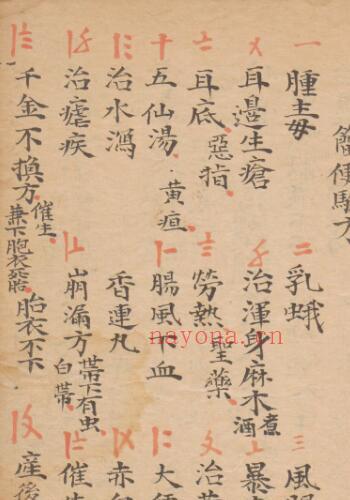 簡便驗方
一 腫毒 二 乳蛾 三 風
〤 耳邊生瘡 〥 治渾身麻木 煮酒 〦 暴
〧 耳底 惡指 〨 勞熱 聖藥 〩 治
十 五仙湯 黃疸 腸風下血 大
治水瀉 香連丸 赤
治瘧疾 崩漏方 帶下有虫 白帶 催
千金不換方 催生 兼下胞衣死胎 胎衣不下 產後
nayona.cn